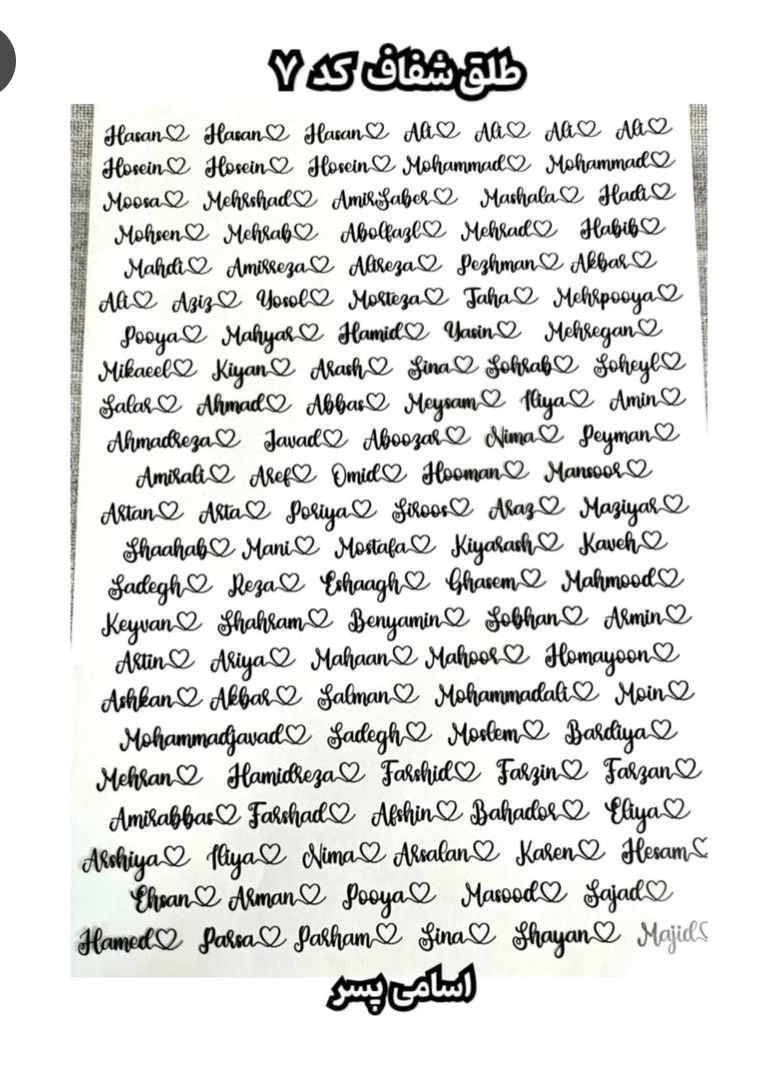 طلق شفاف کد ۷
Hasan♡ Hasan♡ Hasan♡ Ali♡ Ali♡ Ali♡ Ali♡
Hosein♡ Hosein♡ Hosein♡ Mohammad♡ Mohammad♡
Moosa♡ Mehrshad♡ AmirSaber♡ Mashala♡ Hadi♡
Mohsen♡ Mehrab♡ Abolfazl♡ Mehrad♡ Habib♡
Mahdi♡ Amirreza♡ Alireza♡ Pezhman♡ Akbar♡
Ali♡ Aziz♡ Yosol♡ Morteza♡ Taha♡ Mehrpooya♡
Pooya♡ Mahyar♡ Hamid♡ Yasin♡ Mehregan♡
Mikaeel♡ Kiyan♡ Arash♡ Sina♡ Sohrab♡ Soheyl♡
Salar♡ Ahmad♡ Abbas♡ Meysam♡ Iliya♡ Amin♡
Ahmadreza♡ Javad♡ Aboozar♡ Nima♡ Peyman♡
Amirali♡ Aref♡ Omid♡ Hooman♡ Mansoor♡
Artan♡ Arta♡ Poriya♡ Siroos♡ Araz♡ Maziyar♡
Shaahab♡ Mani♡ Mostafa♡ Kiyarash♡ Kaveh♡
Sadegh♡ Reza♡ Eshaagh♡ Ghasem♡ Mahmood♡
Keyvan♡ Shahram♡ Benyamin♡ Sobhan♡ Armin♡
Artin♡ Ariya♡ Mahaan♡ Mahoor♡ Homayoon♡
Ashkan♡ Akbar♡ Salman♡ Mohammadali♡ Moin♡
Mohammadjavad♡ Sadegh♡ Moslem♡ Bardiya♡
Mehran♡ Hamidreza♡ Farshid♡ Farzin♡ Farzan♡
Amirabbas♡ Farshad♡ Afshin♡ Bahador♡ Eliya♡
Arshiya♡ Iliya♡ Nima♡ Arsalan♡ Karen♡ Hesam♡
Ehsan♡ Arman♡ Pooya♡ Masood♡ Sajad♡
Hamed♡ Parsa♡ Parham♡ Sina♡ Shayan♡ Majid♡
اسامی پسر